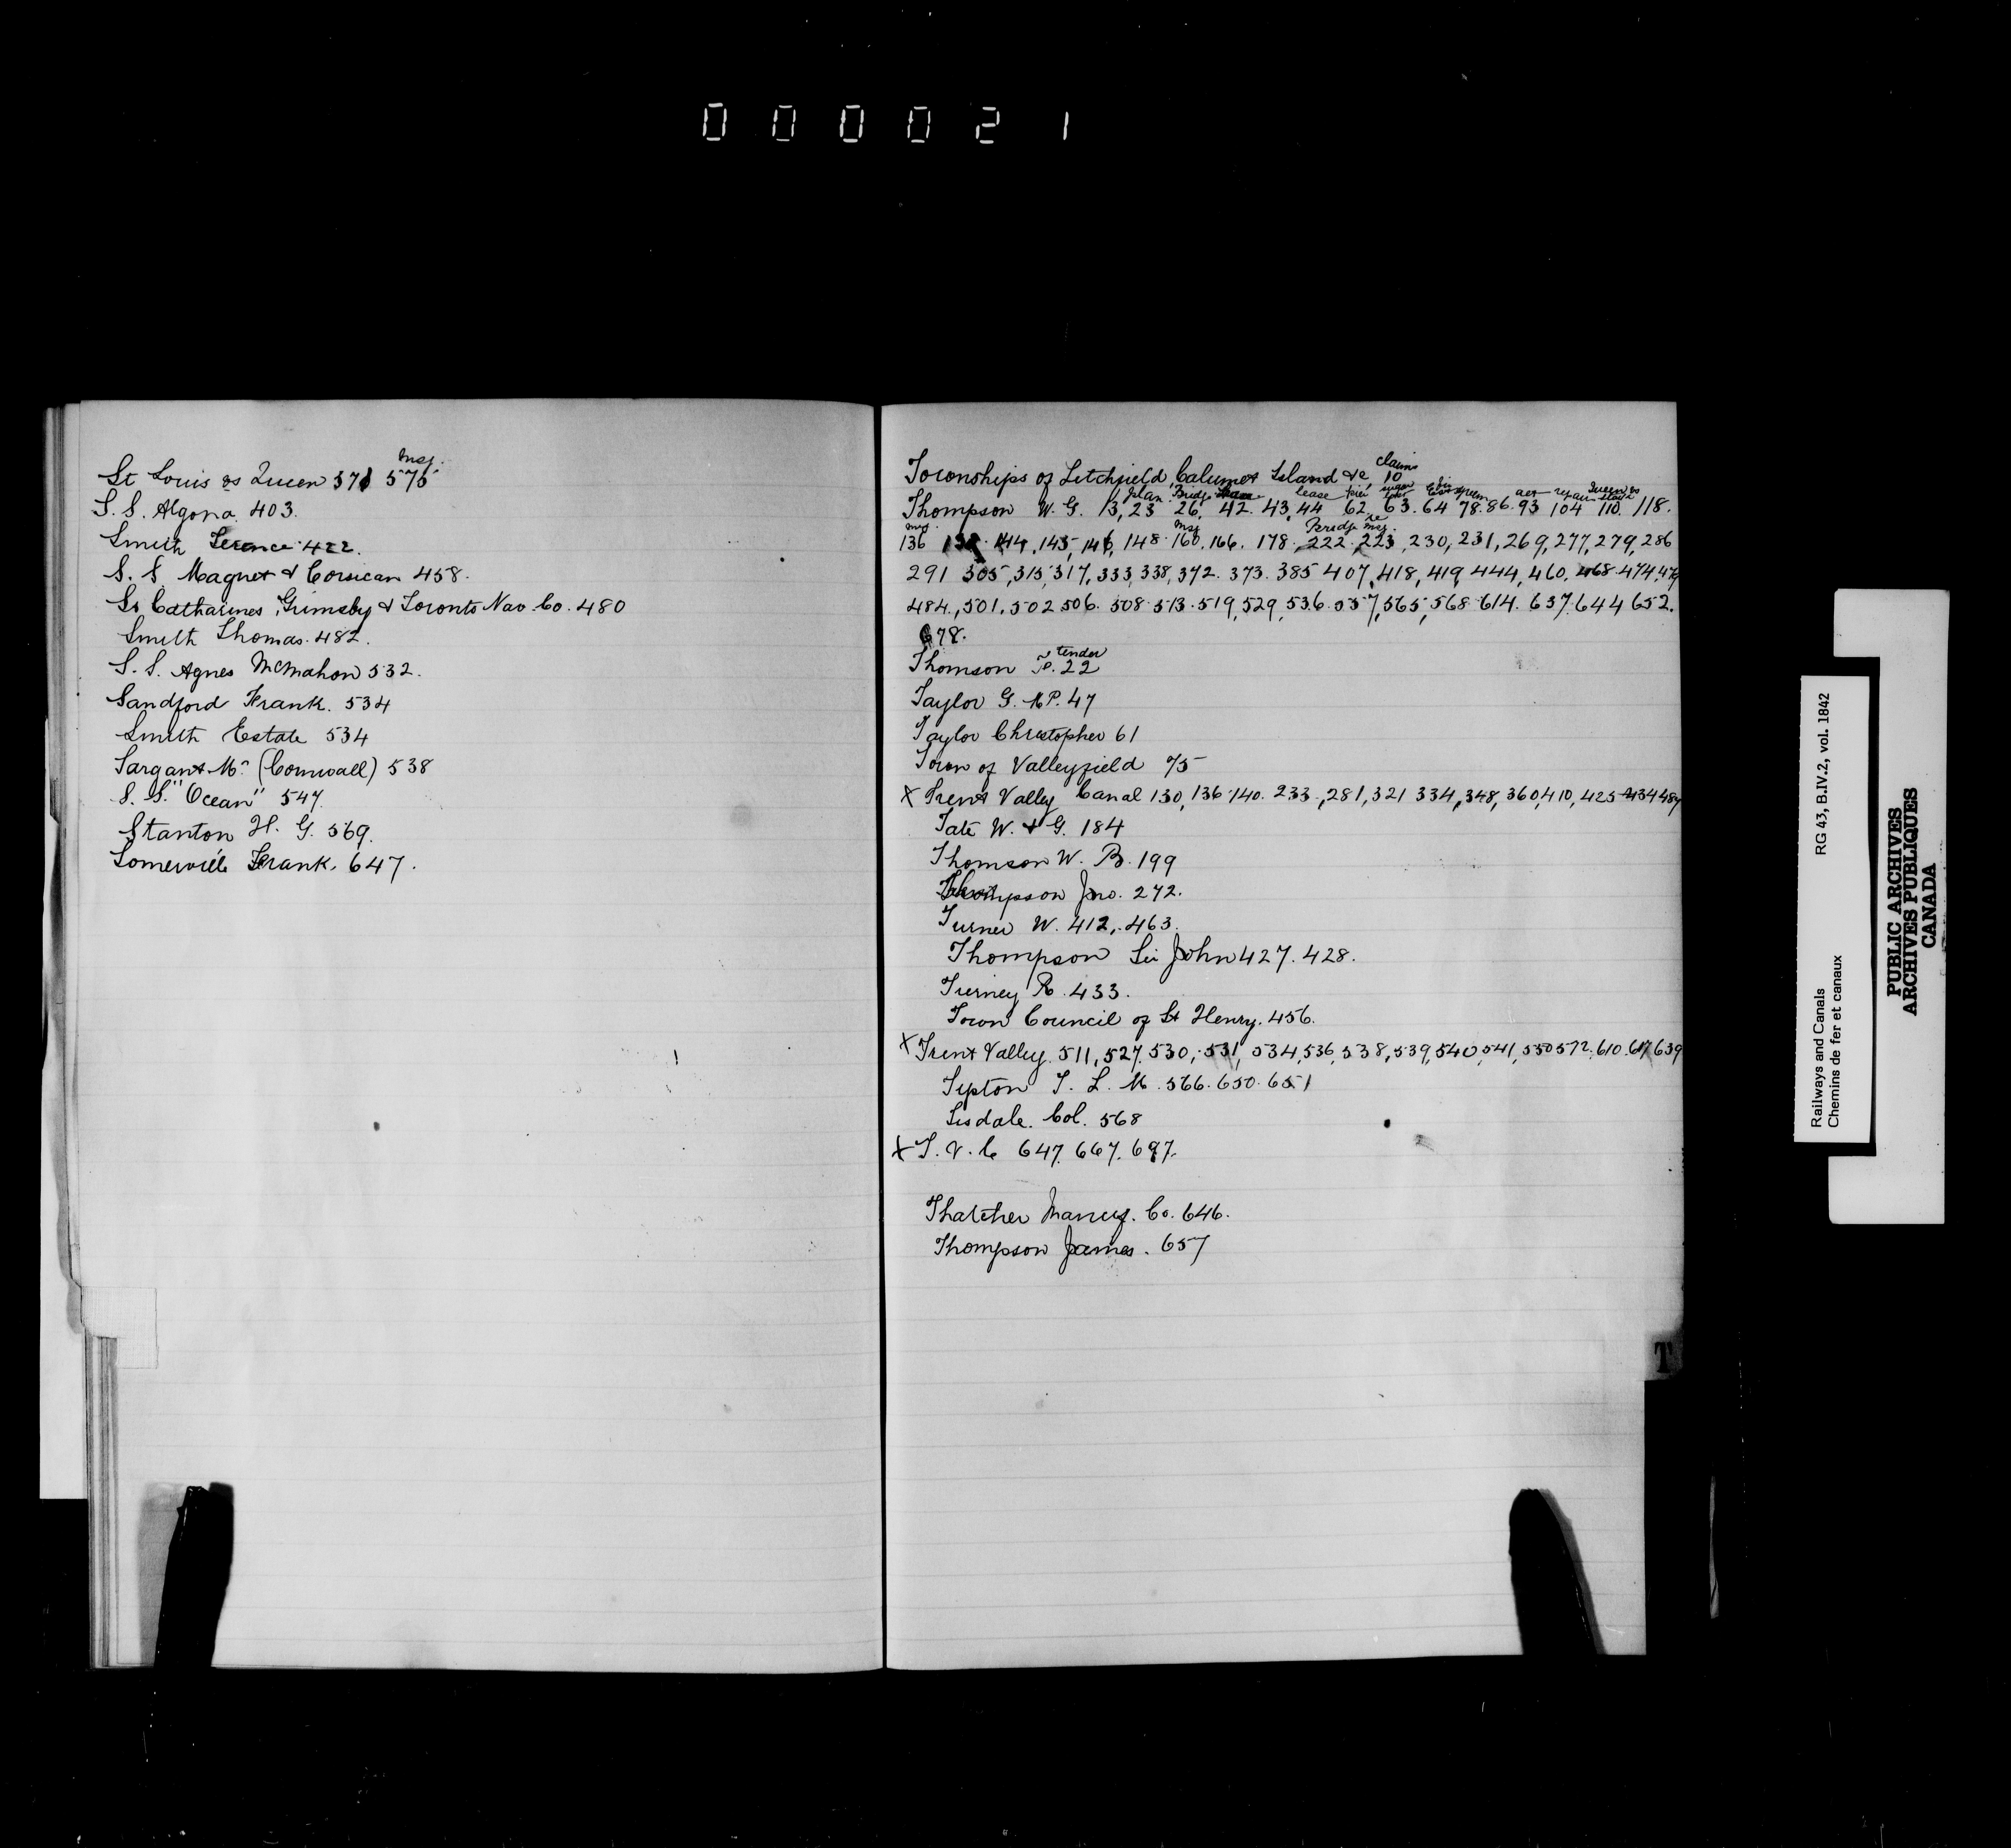 000021
msg.
St Louis vs Queen 371 575
S. S. Algona 403.
Smith Terence 422.
S. S. Magnet & Corsican 458.
St Catharines, Grimsby & Toronto Nav Co. 480
Smith Thomas. 482.
S. S. Agnes McMahon 532.
Sandford Frank. 534
Smith Estate 534
Sargant Mr. (Cornwall) 538
S. S. "Ocean" 547
Stanton H. G. 569.
Somerville Frank. 647.
claims
Townships of Litchfield, Calumet Island &c, 10
plan Bridge lease
Thompson W. G. 13, 23 26. 42. 43, 44 62. 63. 64 78. 86. 93 104 110. 118.
msg. msg Bridge msg.
136 144, 145, 146, 148. 160. 166. 178. 222. 223, 230, 231, 269, 277, 279, 286
291 305, 315, 317, 333, 338, 372. 373. 385 407, 418, 419, 444, 460, 468. 474, 479
484., 501. 502 506. 508. 513. 519, 529, 536. 557, 565, 568. 614. 637. 644 652.
678.
tender
Thomson P. 22
Taylor G. M.P. 47
Taylor Christopher 61
Town of Valleyfield 75
X Trent Valley Canal 130, 136. 140. 233., 281, 321 334, 348, 360, 410, 425 434 489
Tate W. & G. 184
Thomson W. B. 199
Thompson Jno. 272.
Turner W. 412, 463.
Thompson Sir John 427. 428.
Tierney R. 433.
Town Council of St Henry. 456.
X Trent Valley. 511, 527. 530, 531, 534, 536, 538, 539, 540, 541, 550 572. 610. 617 639
Tipton T. L. M. 566. 650. 651
Tisdale. Col. 568
X T. V. C 647. 667. 697.
Thatcher Manufg. Co. 646.
Thompson James. 657
T
RG 43, B.IV.2, vol. 1842
Railways and Canals
Chemins de fer et canaux
PUBLIC ARCHIVES
ARCHIVES PUBLIQUES
CANADA